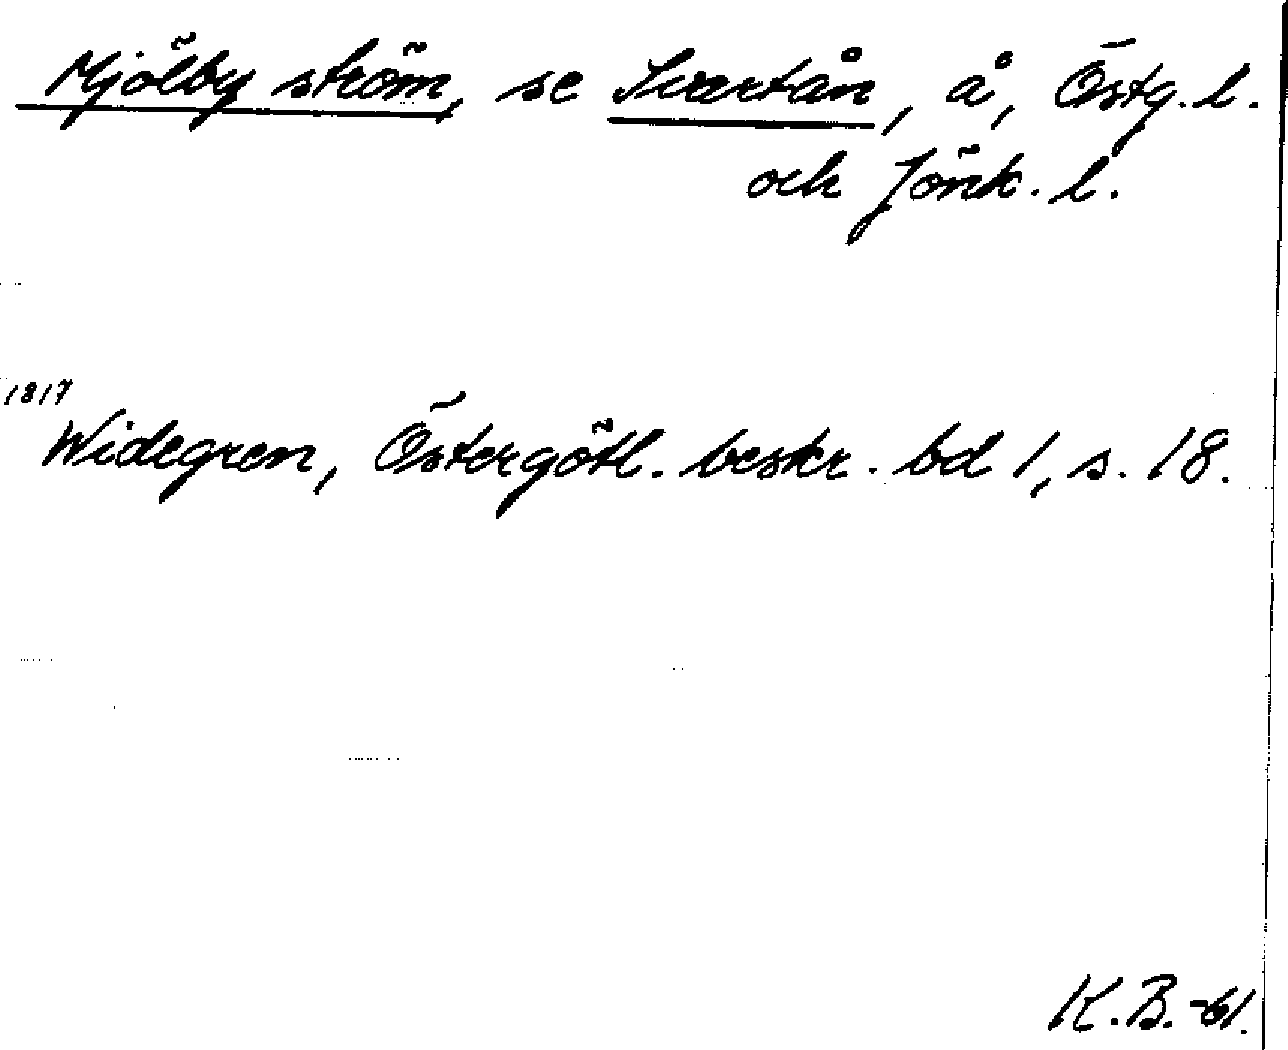 Mjölby ström, se Svartån, å, Östg. l.
och Jönk. l.
1817
Widegren, Östergötl. beskr. bd 1, s. 18.
K. B. -61.